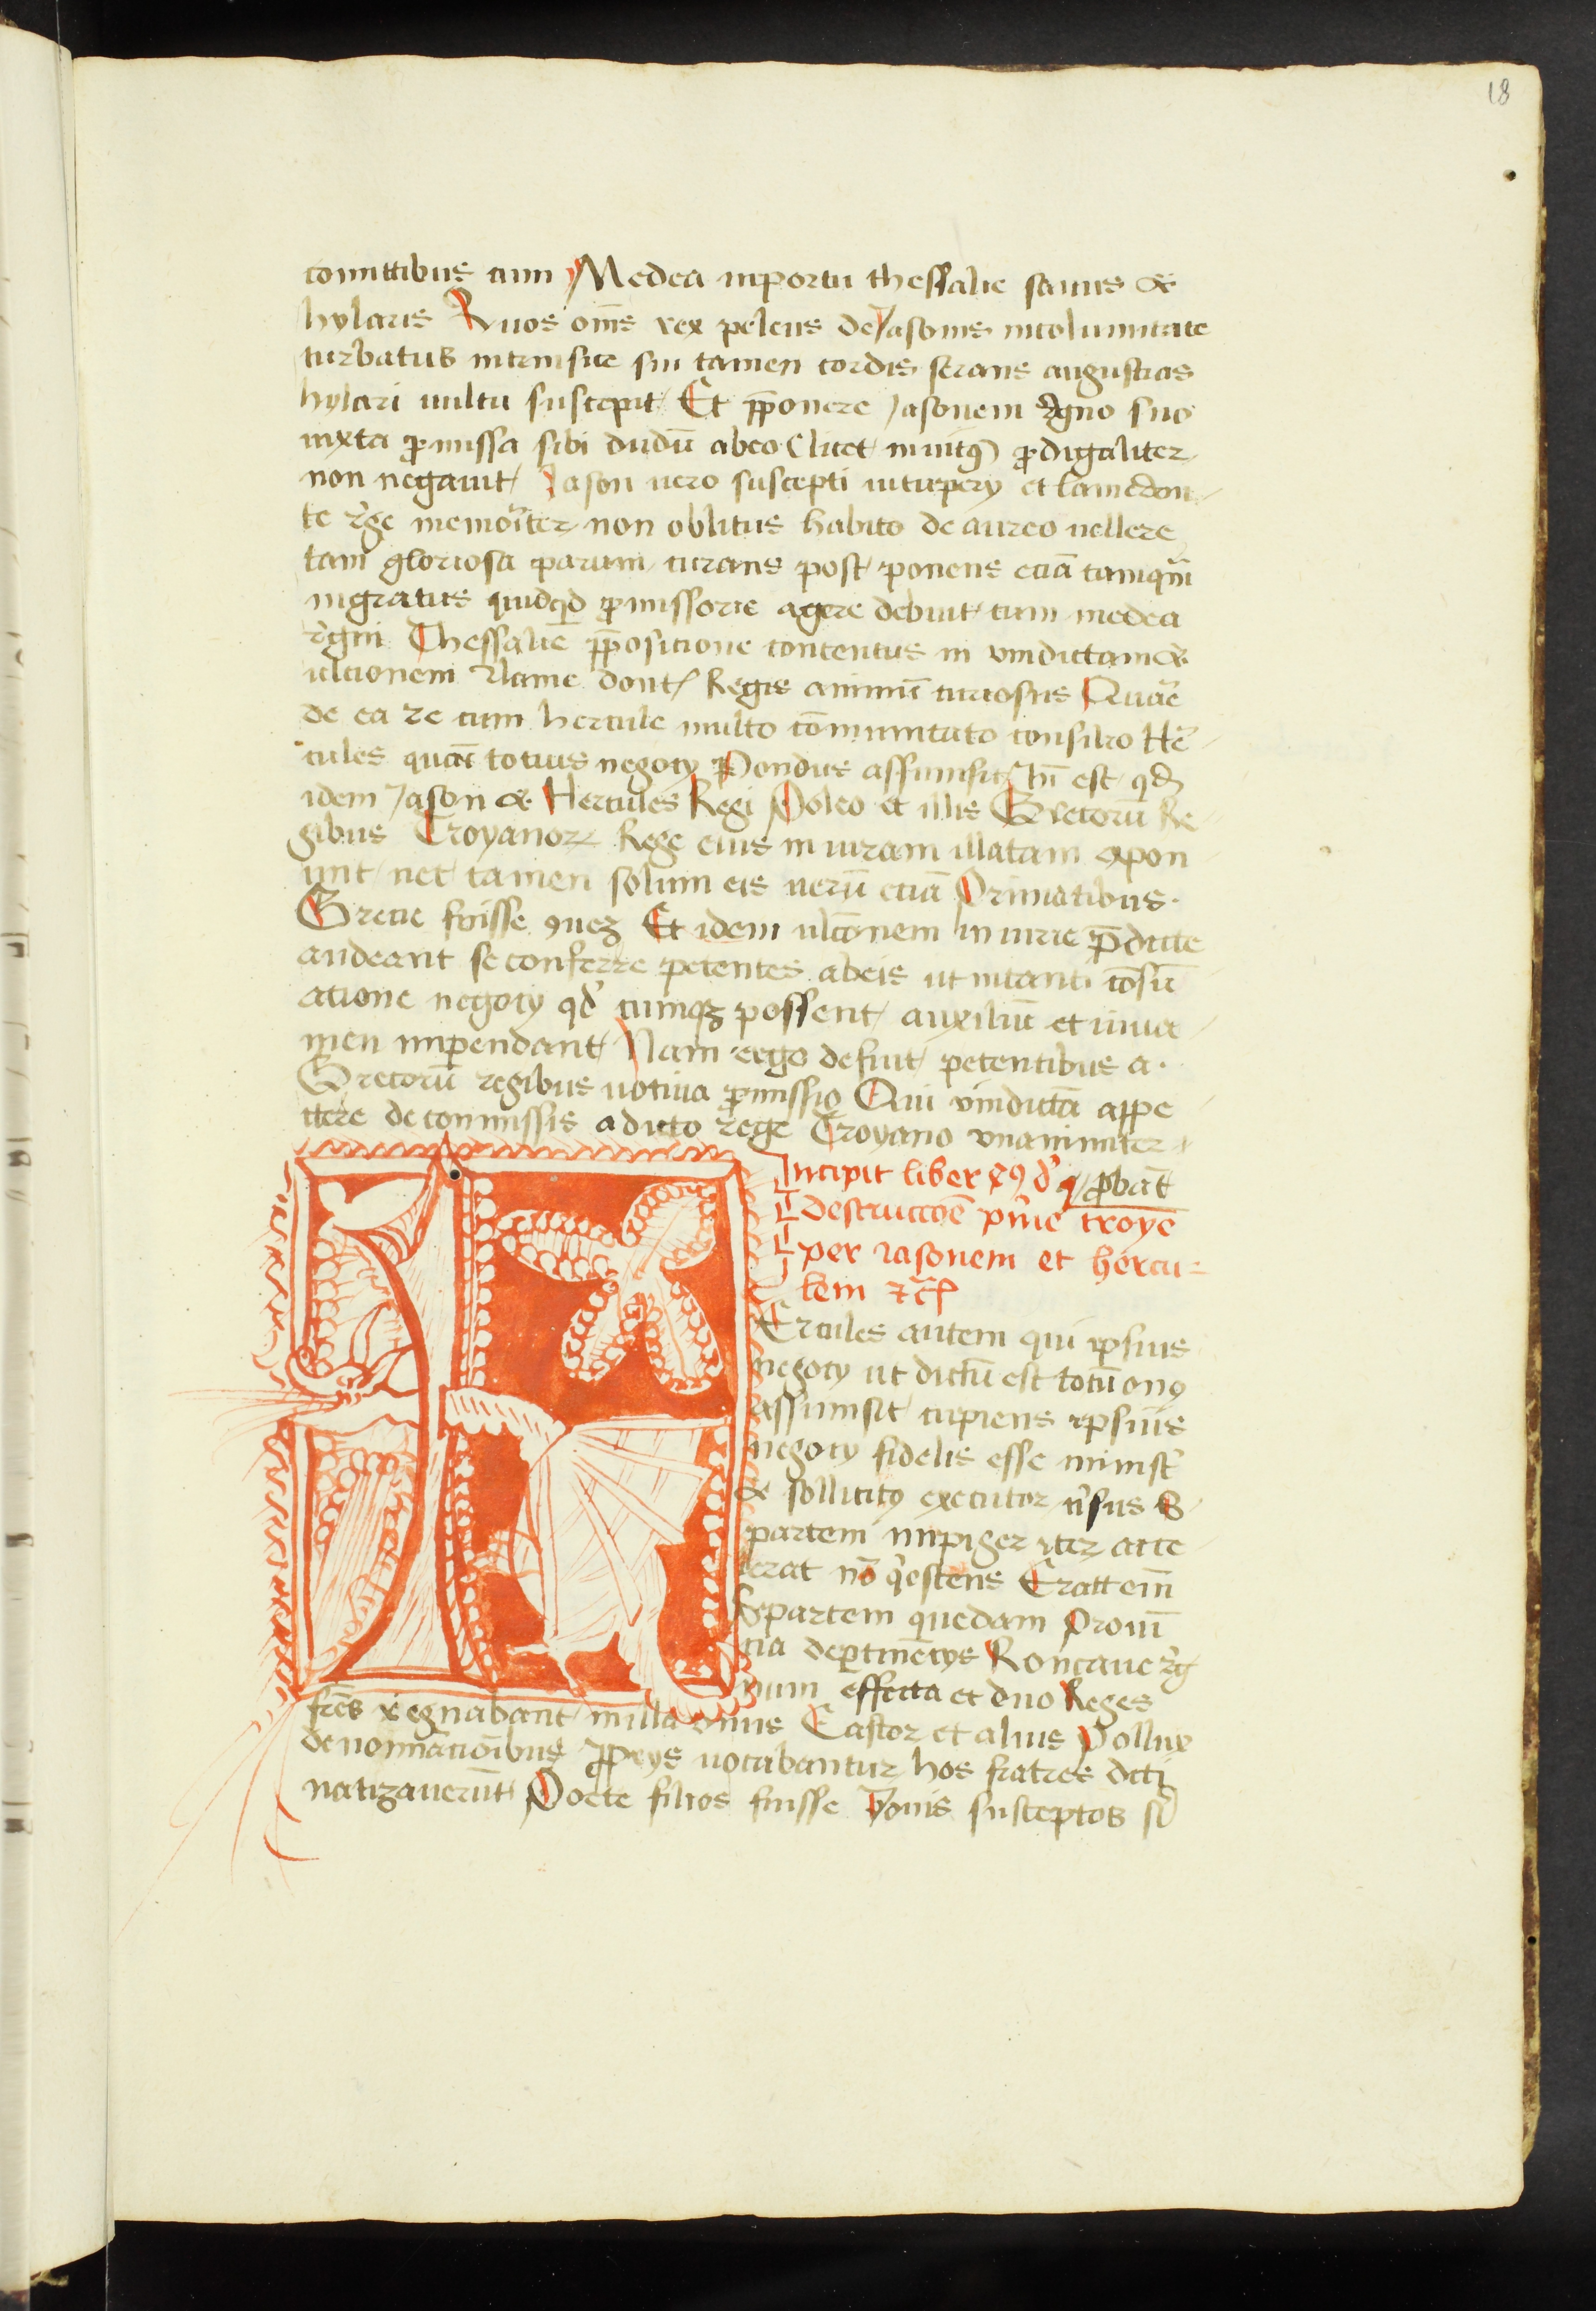 18
comittibus cum Medea in portu thessalie sanus &
hylaris Quos om̄s rex peleus de Jasonis incolumitate
turbatus intrinsice sui tamen cordis serans angustias
hylari uultu suscepit Et p̄ponere Jasonem regno suo
iuxta promissa sibi dudū abeo (licet inuitus) prodigaliter
non negauit Jason uero suscepti uituperij et lamedon
te rege memoriter non oblitus habito de aureo uellere
tam gloriosa parum curans post ponens eciā tamquā
ingratus quidquid promissorie agere debuit cum medea
regni Thessalie p̄posicione contentus in vindictam &
ulcionem Lame dont Regis animū curiosus Quare
de ea re cum hercule multo cōmunicato consilio Her
cules quasi totius negocij Pondus assumsit Hinc est qd
idem Jason & Hercules Regi Poleo et illis Grecorū Re
gibus Troyanor Rege eius iniuram illatam expon
unt nec tamen solum eis uerū eciā Primatibus
Grecie fuisse Et idem ulcōnem iniurie p̄dicte
audeant se conferre petentes abeis ut
atione negocij qd cumqz possent auxiliū et iuua
men impendant Nam ergo defuit petentibus a
Grecorū regibus uotiua promissio Qui vindictā appe
tere de commissis a dicto rege Troyano vnanimiter
Incipit liber qd probāt
destruccōē prime troye
per iasonem et hercu
lem
Ercules autem qui ipsius
negocij ut dictū est totū onus
assumsit cupiens ipsius
negocij fidelis esse minist
& sollicitus executor uersus
partem impiger iter acce
lerat nō quiescens Erat eim
separtem quedam Prouī
cia de pertinēcijs Roncanie reg
num effecta et duo Reges
fres regnabant in illa vnus Castor et alius Pollux
denominacionibus proprijs uocabantur hos fratres
natizauerūt Poete filios fuisse Jouis susceptos